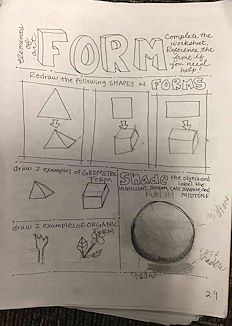 elements of art
FORM
Complete the
worksheet.
Reference the
front if
you need
help!
Redraw the following SHAPES as FORMS
draw 2 examples of GEOMETRIC
FORM
Shade the object and
label the:
HIGHLIGHT, SHADOW, CAST SHADOW and
MIDTONE
draw 2 examples of ORGANIC
FORM
midtone
cast
shadow
shadow
29